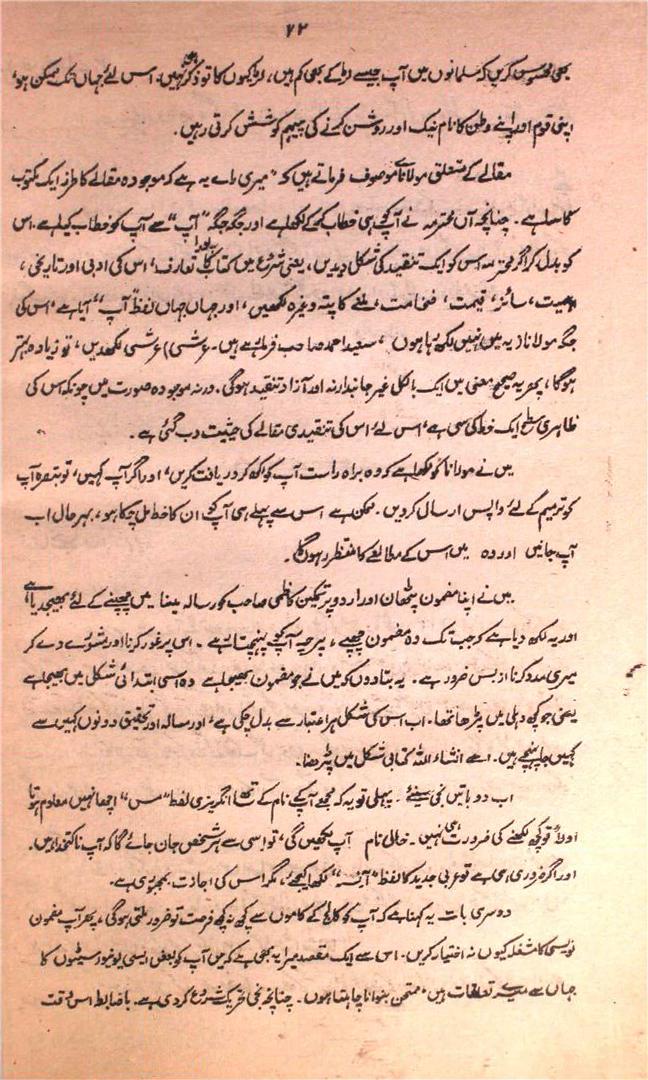 ۴۲
بھی محسوس کریں کہ مسلمانوں میں آپ جیسے لڑکے بھی کم ہیں، لڑکیوں کا تو ذکر نہیں۔ اس لئے جہاں تک ممکن ہو،
اپنی قوم اور اپنے وطن کا نام نیک اور روشن کرنے کی پیہم کوشش کرتی رہیں۔
مقالے کے متعلق مولانائے موصوف فرماتے ہیں کہ "میری رائے یہ ہے کہ موجودہ مقالے کا طرز ایک مکتوب
کا سا ہے۔ چنانچہ آں محترمہ نے آپ کو ہی خطاب کر کے لکھا ہے اور جگہ جگہ "آپ" سے آپ کو خطاب کیا ہے۔ اس
کو بدل کر اگر محترمہ اس کو ایک تنقید کی شکل دیدیں، یعنی شروع میں کتاب کا تعارف، اس کی ادبی اور تاریخی،
اہمیت، سائز، قیمت، ضخامت، ملنے کا پتہ وغیرہ لکھیں، اور جہاں جہاں لفظ "آپ" آیا ہے، اس کی
جگہ مولانا (یہ میں نہیں لکھ رہا ہوں، سعید احمد صاحب فرما رہے ہیں۔ عرشی) عرشی لکھدیں، تو زیادہ بہتر
ہوگا، پھر یہ صحیح معنی میں ایک بالکل غیر جانبدارانہ اور آزاد تنقید ہوگی۔ ورنہ موجودہ صورت میں چونکہ اس کی
ظاہری سطح ایک خط کی سی ہے، اس لئے اس کی تنقیدی مقالے کی حیثیت دب گئی ہے۔
میں نے مولانا کو لکھا ہے کہ وہ براہ راست آپ کو لکھ کر دریافت کریں، اور اگر آپ کہیں، تو تبصرہ آپ
کو ترمیم کے لئے واپس ارسال کر دیں۔ ممکن ہے اس سے پہلے ہی آپ کو ان کا خط مل چکا ہو، بہرحال اب
آپ جانیں اور وہ میں اس کے مطالعے کا منتظر رہوں گا۔
میں نے اپنا مضمون پٹھان اور اردو پر تمکین کاظمی صاحب کو رسالہ میں چھپنے کے لئے بھیجدیا ہے
اور یہ لکھ دیا ہے کہ جب تک وہ مضمون چھپے، پرچہ آپ کو پہنچتا رہے۔ اس پر غور کرنا اور مشورے دے کر
میری مدد کرنا از بس ضرور ہے۔ یہ بتا دوں کہ میں نے جو مضمون بھیجا ہے وہ اسی ابتدائی شکل میں بھیجا ہے
یعنی جو کچھ دہلی میں پڑھا تھا۔ اب اس کی شکل ہر اعتبار سے بدل چکی ہے، اور رسالہ اور تحقیق دونوں کہیں سے
کہیں جا پہنچے ہیں۔ اسے انشاء اللہ کتابی شکل میں پڑھنا۔
اب دو باتیں نجی سنیئے۔ پہلی تو یہ کہ مجھے آپ کے نام کے ساتھ انگریزی لفظ "مس" اچھا نہیں معلوم ہوتا
اولاً تو کچھ لکھنے کی ضرورت ہی نہیں۔ خالی نام آپ لکھیں گی، تو اسی سے ہر شخص جان جائے گا کہ آپ ناکتخدا ہیں۔
اور اگر ضروری ہی ہے تو عربی جدید کا لفظ "آنسہ" لکھا کیجئے، مگر اس کی اجازت بمجبوری ہے۔
دوسری بات یہ کہنا ہے کہ آپ کو کالج کے کاموں سے کچھ نہ کچھ فرصت تو ضرور ملتی ہوگی، پھر آپ مضمون
نویسی کا مشغلہ کیوں نہ اختیار کریں۔ اس سے ایک مقصد میرا یہ بھی ہے کہ میں آپ کو بعض ایسی یونیورسیٹیوں کا
جہاں سے میرے تعلقات ہیں، ممتحن بنوانا چاہتا ہوں۔ چنانچہ نجی تحریک شروع کر دی ہے۔ باضابطہ اس وقت